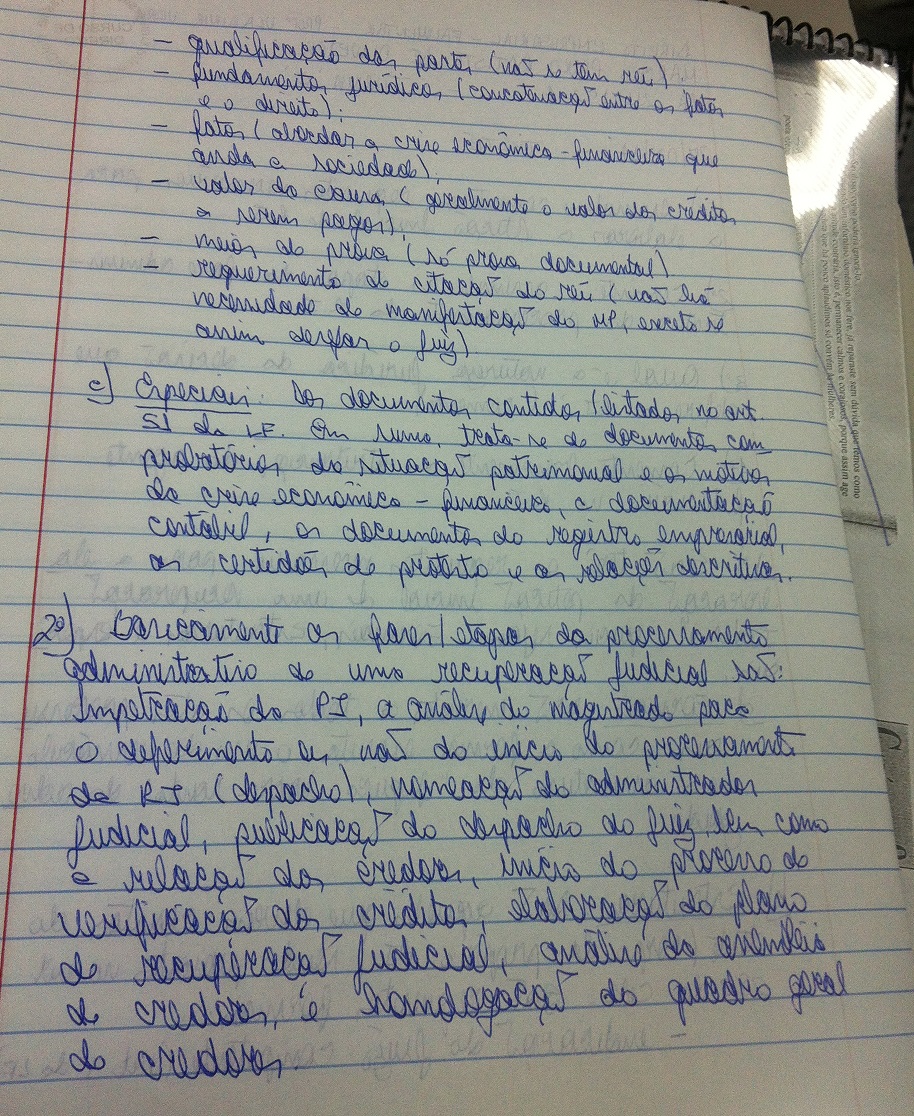 - qualificação das partes (não se tem réu)
- fundamentos jurídicos (concatenação entre os fatos
e o direito);
- fatos (abordar a crise econômico-financeira que
anda a sociedade);
- valor da causa (geralmente o valor dos créditos
a serem pagos);
- meios de prova (só prova documental)
- requerimento de citação do réu (não há
necessidade de manifestação do MP, exceto se
assim desejar o juiz)
c) Especiais: Os documentos contidos/listados no art.
51 da LF. Em suma, trata-se de documentos com
probatórios da situação patrimonial e os motivos
da crise econômico-financeira, a documentação
contábil, os documentos do registro empresarial,
as certidões de protesto e as relações descritivas.
2º) Basicamente as fases/etapas do processamento
administrativo de uma recuperação judicial são:
Impetração da PI, a análise do magistrado para
o deferimento ou não do início do processamento
da RJ (despacho), nomeação do administrador
judicial, publicação do despacho do juiz bem como
a relação dos credores, início do processo de
verificação dos créditos, elaboração do plano
de recuperação judicial, análise da assembleia
de credores, e homologação do quadro geral
de credores.